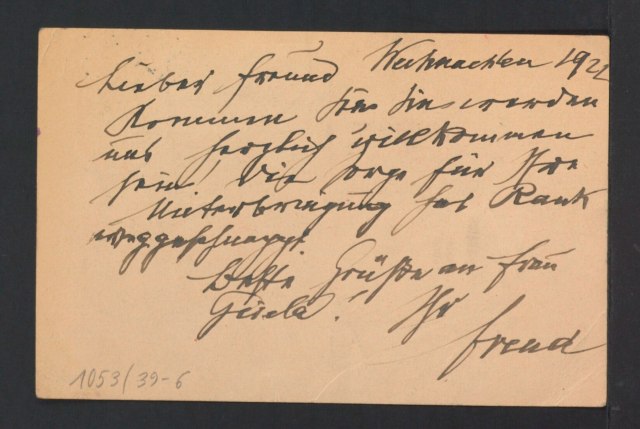 Weihnachten 192
Lieber Freund
Kommen Sie Sie werden
uns herzlich willkommen
sein, die Sorge für Ihre
Unterbringung hat Rank
weggeschnappt.
Beste Grüße an Frau
Gisela! Ihr
Freud
1053/39-6